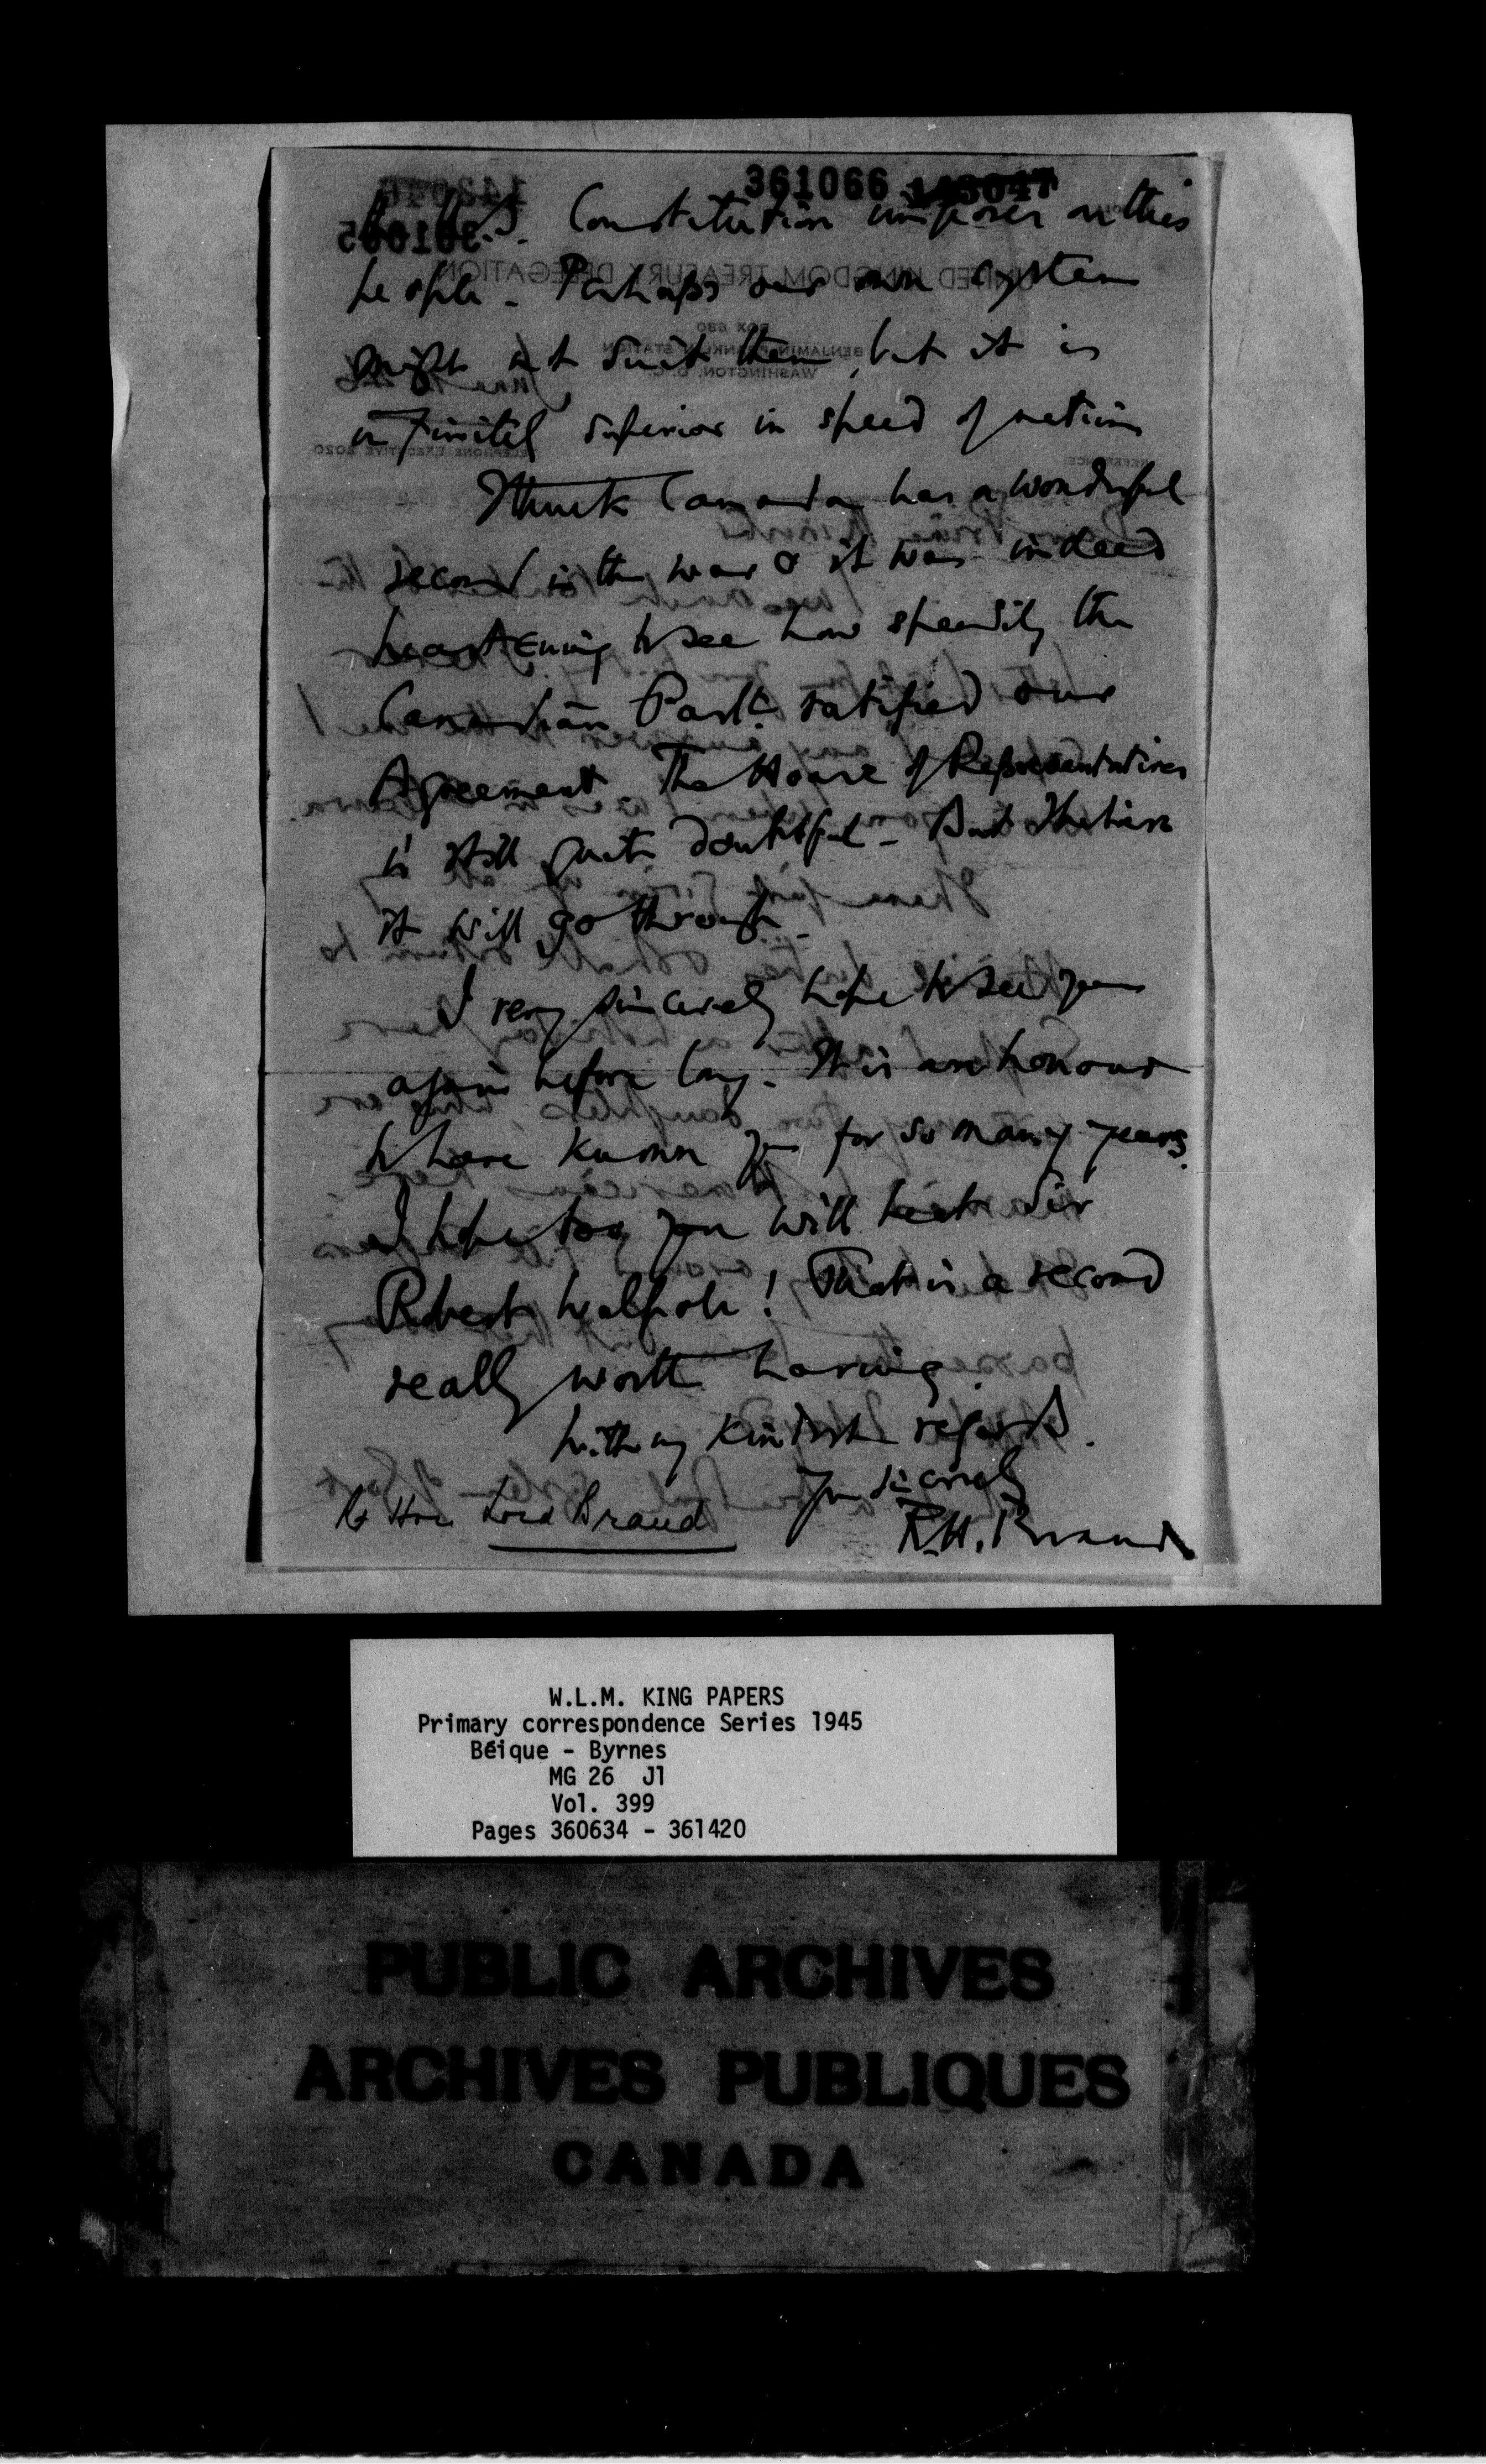 361066 143047
the U.S. Constitution imposes on this
people. Perhaps our own system
might not suit them, but it is
infinitely superior in speed of action
I think Canada has a wonderful
record in the war & it was indeed
heartening to see how speedily the
Canadian Parlt. ratified our
Agreement. The House of Representatives
is still quite doubtful - But I believe
it will go through.
I very sincerely hope to see you
again before long. It is an honour
to have known you for so many years.
I hope too you will beat Sir
Robert Walpole! That is a record
really worth having.
With my kindest regards.
Yrs sincerely
R.H. Brand
Rt Hon Lord Brand
W.L.M. KING PAPERS
Primary correspondence Series 1945
Béique - Byrnes
MG 26 J1
Vol. 399
Pages 360634 - 361420
PUBLIC ARCHIVES
ARCHIVES PUBLIQUES
CANADA